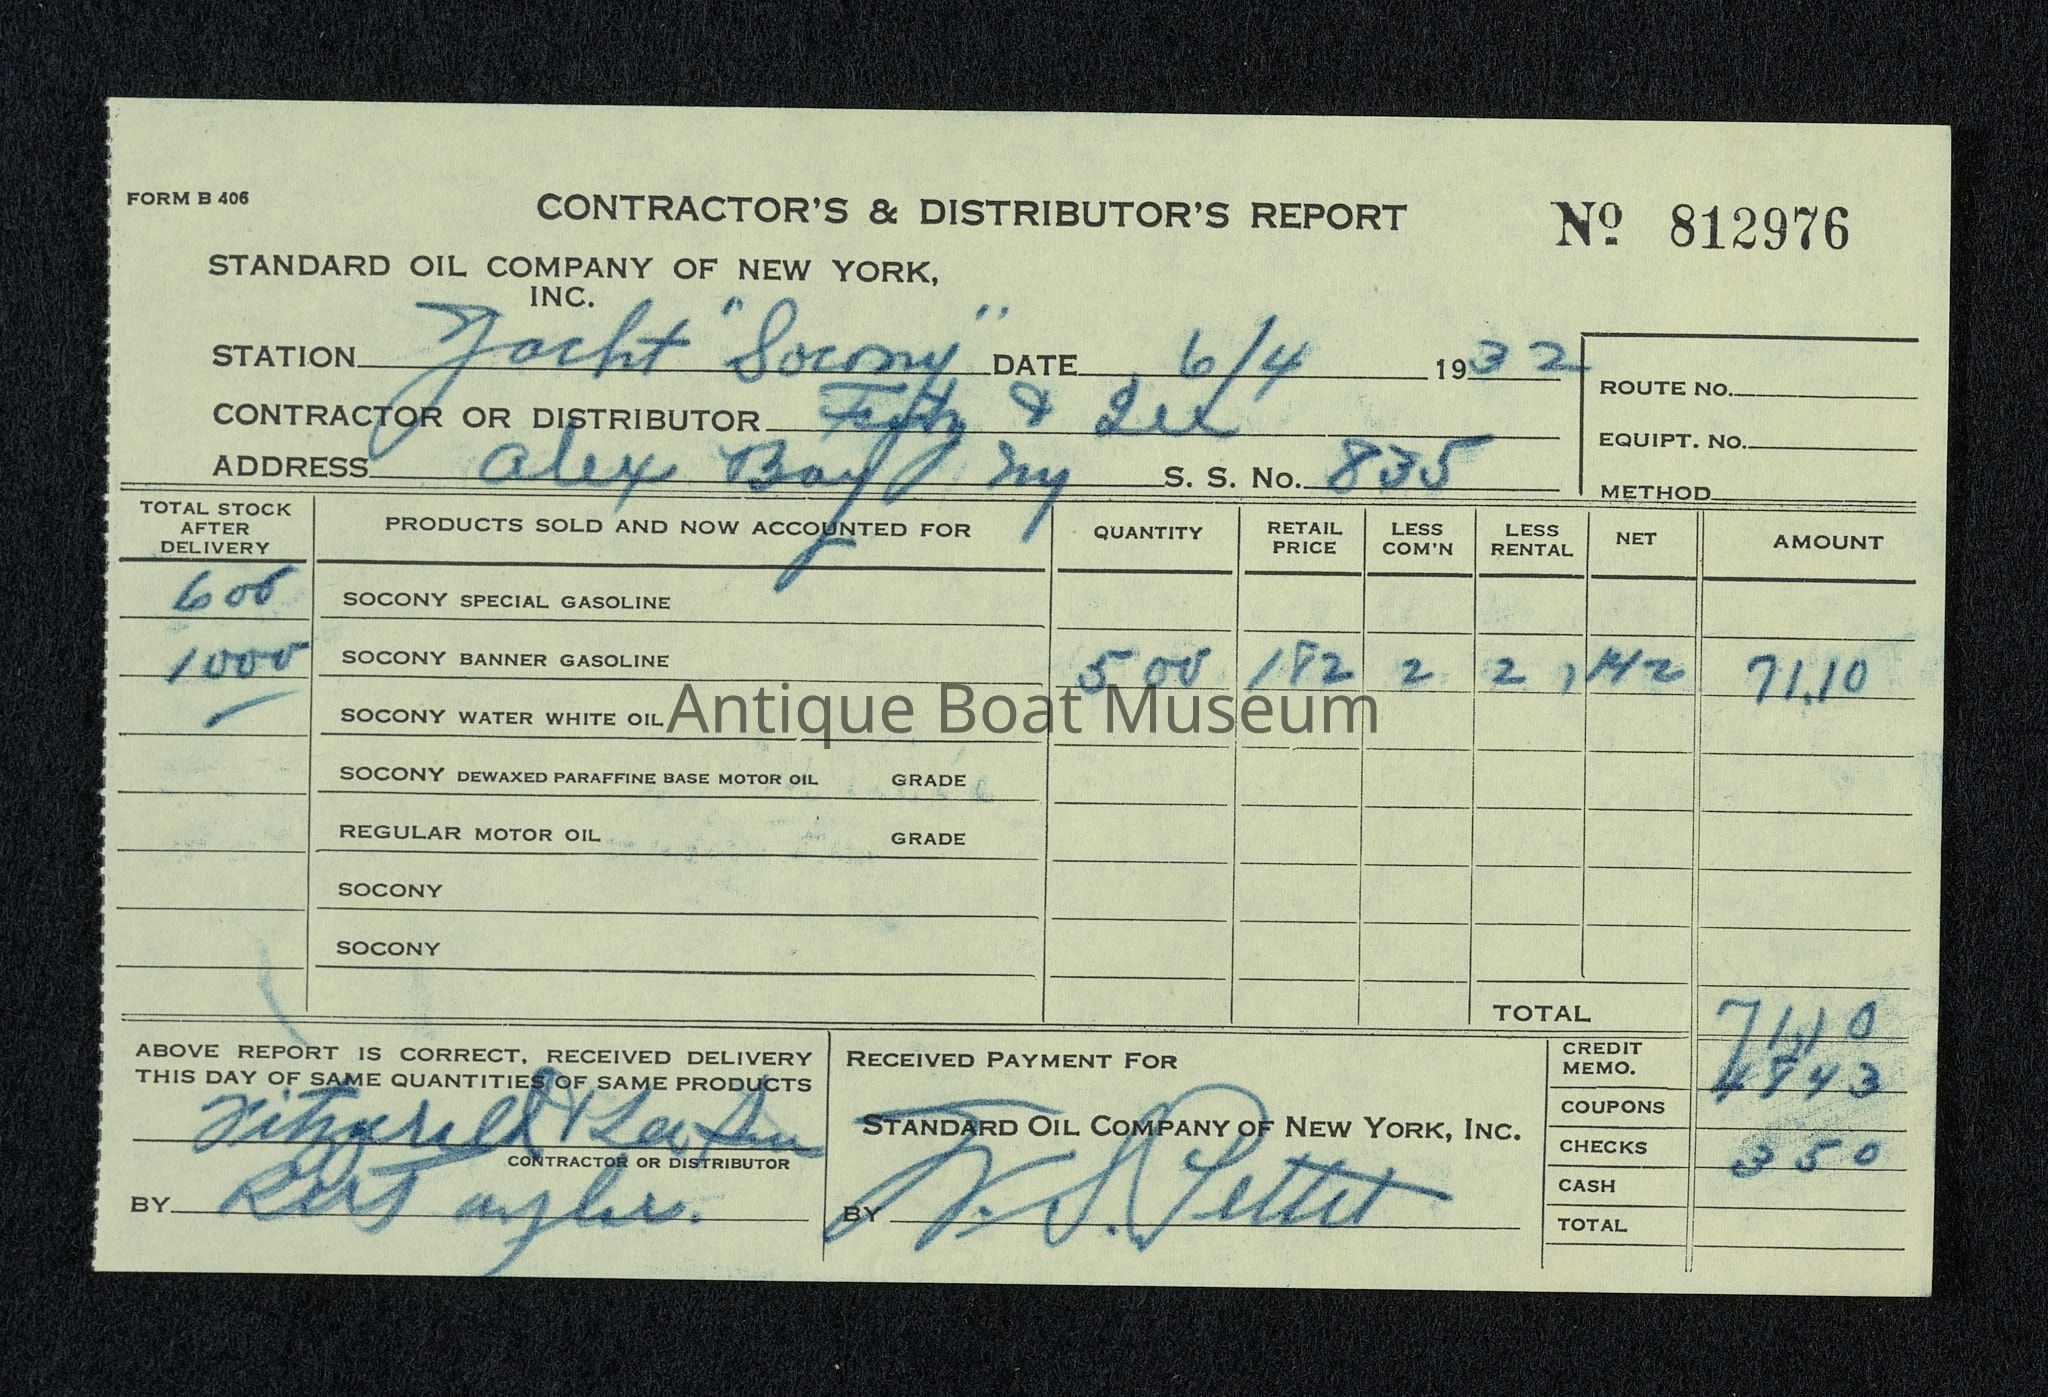 FORM B 406
CONTRACTOR'S & DISTRIBUTOR'S REPORT
Nº 812976
STANDARD OIL COMPANY OF NEW YORK,
INC.
STATION Yacht "Socony" DATE 6/4 1932
ROUTE NO.
CONTRACTOR OR DISTRIBUTOR Fitz & Lee
EQUIPT. NO.
ADDRESS Alex Bay, NY S. S. NO. 835
METHOD
TOTAL STOCK AFTER DELIVERY PRODUCTS SOLD AND NOW ACCOUNTED FOR QUANTITY RETAIL PRICE LESS COM'N LESS RENTAL NET AMOUNT
600 SOCONY SPECIAL GASOLINE
1000 SOCONY BANNER GASOLINE 500 182 2 2 ,142 71.10
SOCONY WATER WHITE OIL
Antique Boat Museum
SOCONY DEWAXED PARAFFINE BASE MOTOR OIL GRADE
REGULAR MOTOR OIL GRADE
SOCONY
SOCONY
TOTAL 71.10
ABOVE REPORT IS CORRECT, RECEIVED DELIVERY
THIS DAY OF SAME QUANTITIES OF SAME PRODUCTS
Fitzgerald & Lee
CONTRACTOR OR DISTRIBUTOR
BY
RECEIVED PAYMENT FOR
STANDARD OIL COMPANY OF NEW YORK, INC.
BY W. S. Pettit
CREDIT MEMO.
COUPONS
CHECKS 350
CASH
TOTAL